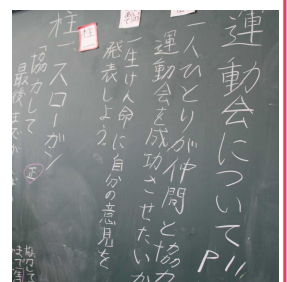 運動会について
P111
一人ひとりが仲間と協力
運動会を成功させたいか
一生けん命に自分の意見を
発表しよう。
柱一スローガン
「協力して
最後まで
正